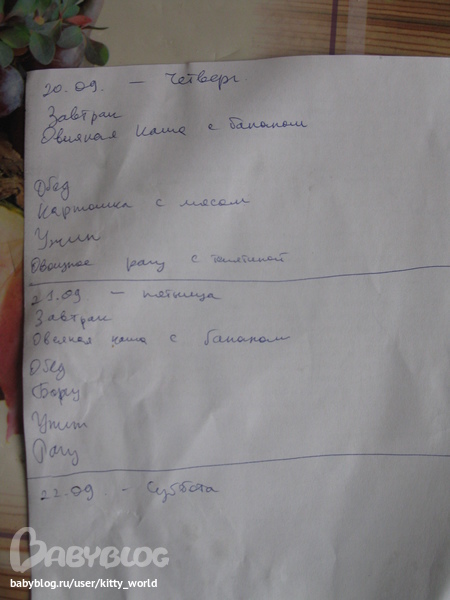 20.09. - Четверг.
Завтрак
Овсяная каша с бананом
Обед
Картошка с мясом
Ужин
Овощное рагу с телятиной
21.09 - пятница
Завтрак
Овсяная каша с бананом
Обед
Борщ
Ужин
Рагу
22.09. - Суббота
BABYBLOG
babyblog.ru/user/kitty_world